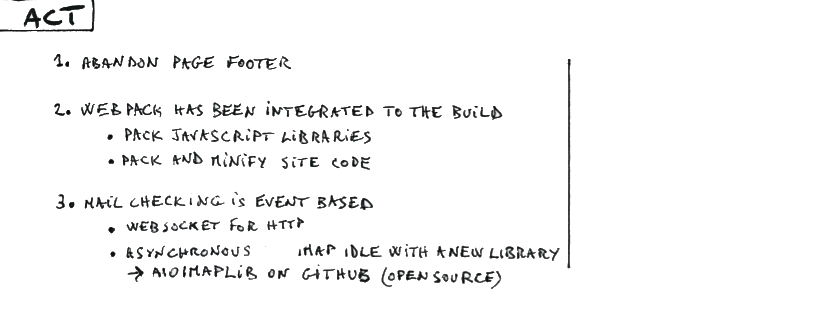 ACT
1. ABANDON PAGE FOOTER
2. WEBPACK HAS BEEN INTEGRATED TO THE BUILD
• PACK JAVASCRIPT LIBRARIES
• PACK AND MINIFY SITE CODE
3. MAIL CHECKING IS EVENT BASED
• WEBSOCKET FOR HTTP
• ASYNCHRONOUS IMAP IDLE WITH A NEW LIBRARY
→ AIOIMAPLIB ON GITHUB (OPEN SOURCE)